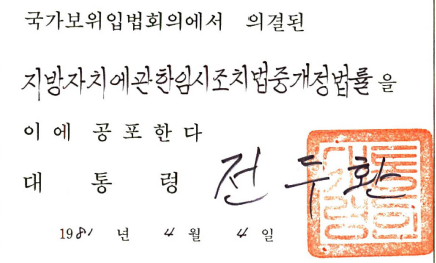 국가보위입법회의에서 의결된
지방자치에관한임시조치법중개정법률을
이에 공포한다
대통령 전두환
1981년 4월 4일